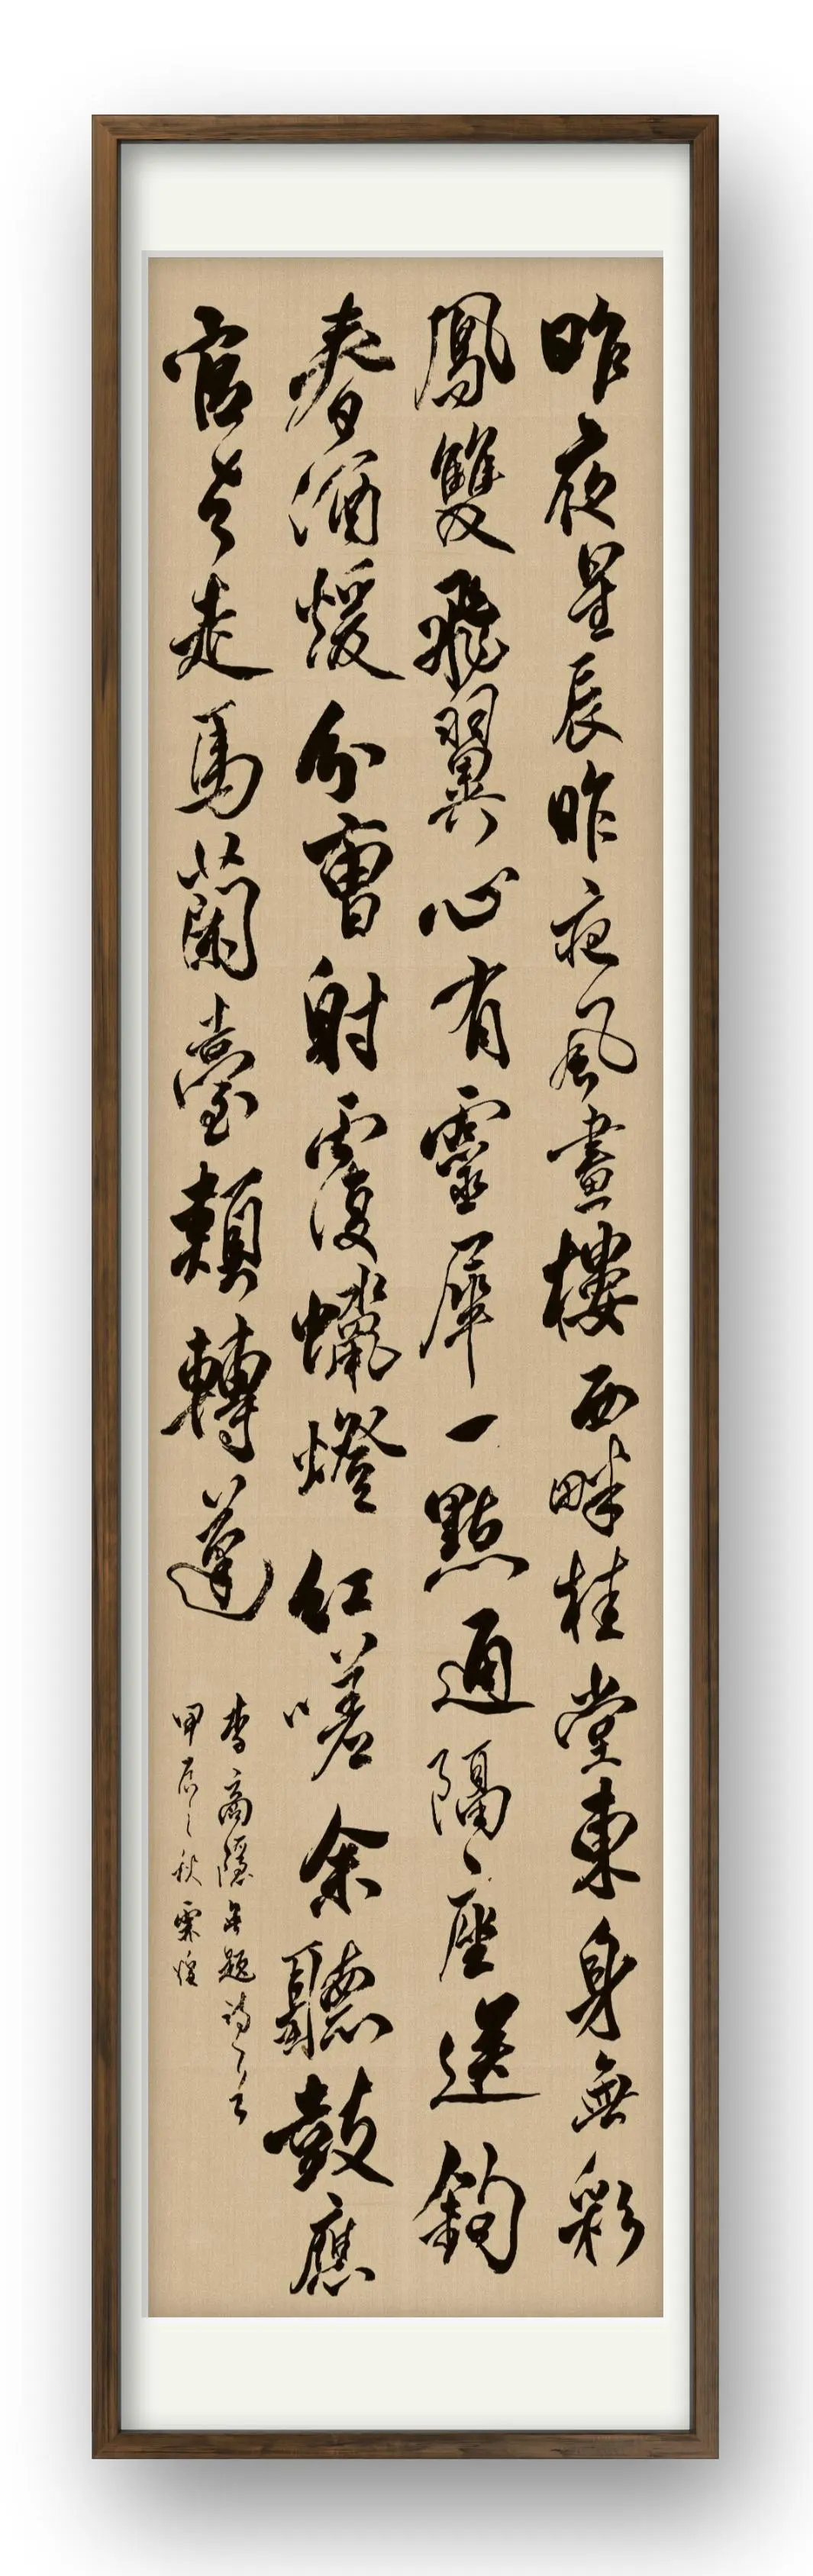 昨夜星辰昨夜風畫樓西畔桂堂東身無彩
鳳雙飛翼心有靈犀一點通隔座送鈎
春酒煖分曹射覆蠟燈紅嗟余聽鼓應
官去走馬蘭臺類轉蓬
李商隱無題詩一首
甲辰之秋霖